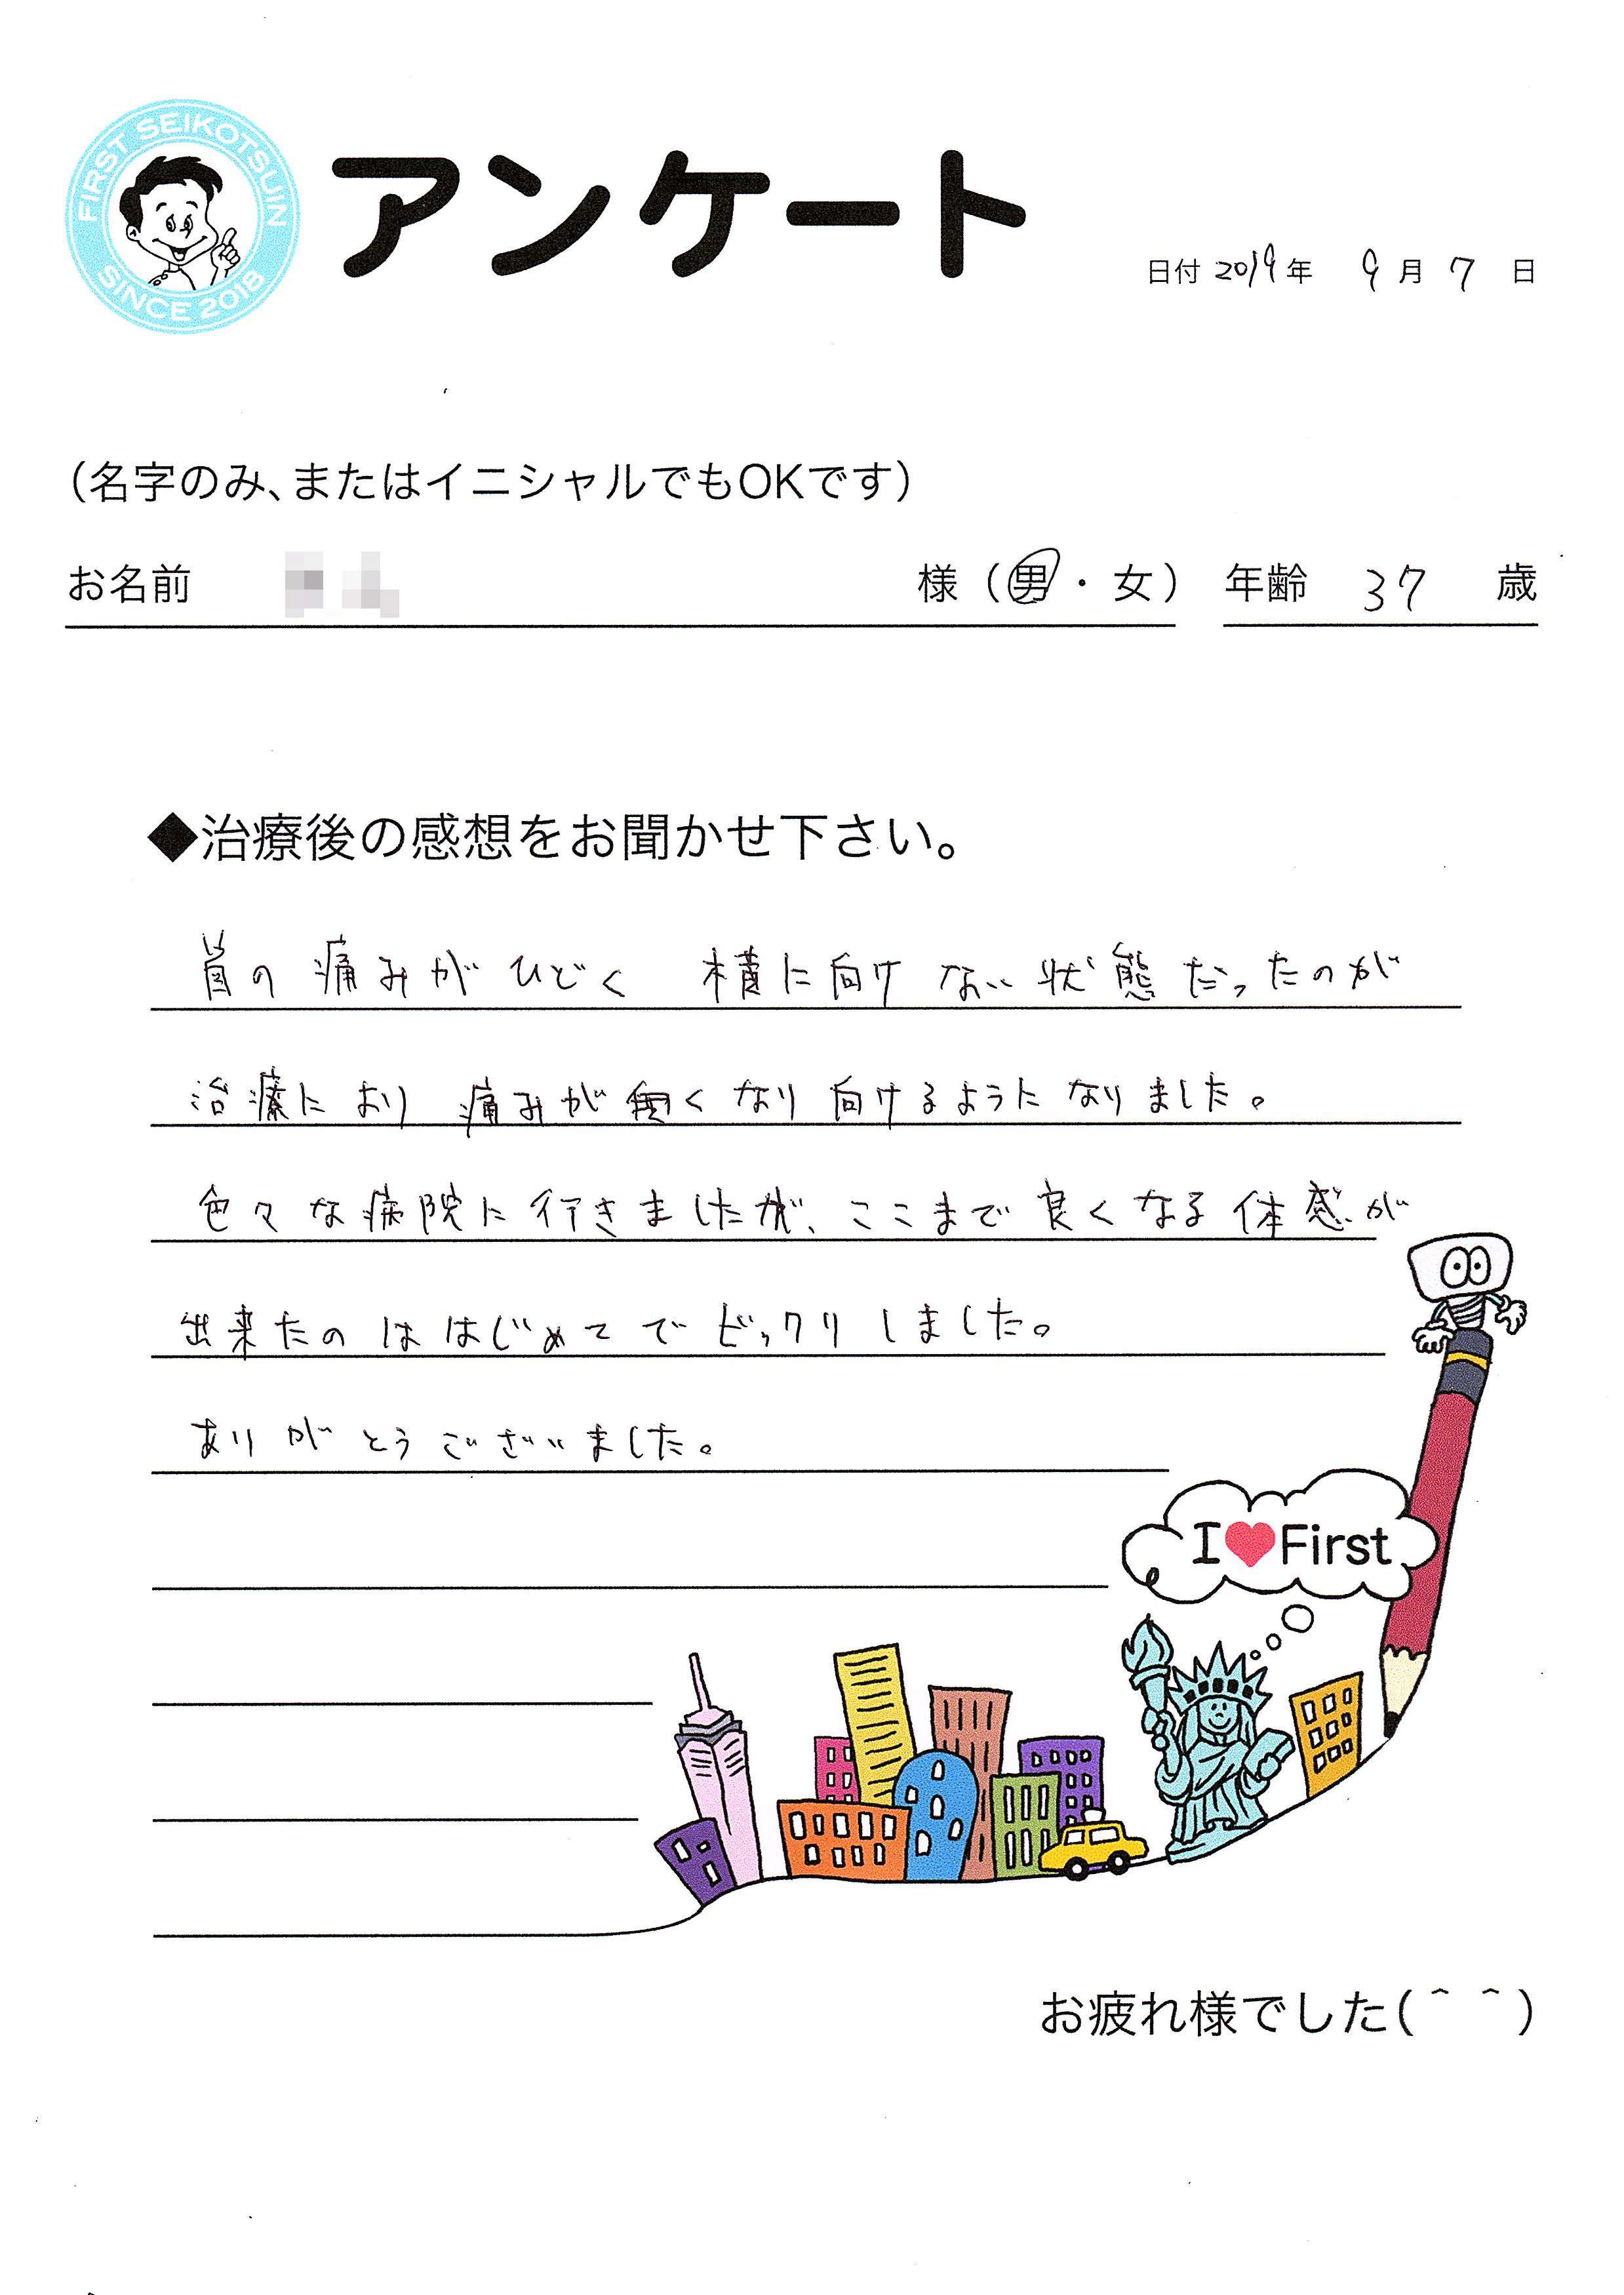 FIRST SEIKOTSUIN
SINCE 2018
アンケート
日付 2019年 9月 7日
（名字のみ、またはイニシャルでもOKです）
お名前 様（男・女） 年齢 37 歳
◆治療後の感想をお聞かせ下さい。
首の痛みがひどく 横に向けない状態だったのが
治療により 痛みが無くなり向けるようになりました。
色々な病院に行きましたが、ここまで良くなる体感が
出来たのははじめてでビックリしました。
ありがとうございました。
I❤First
お疲れ様でした(＾ ＾)